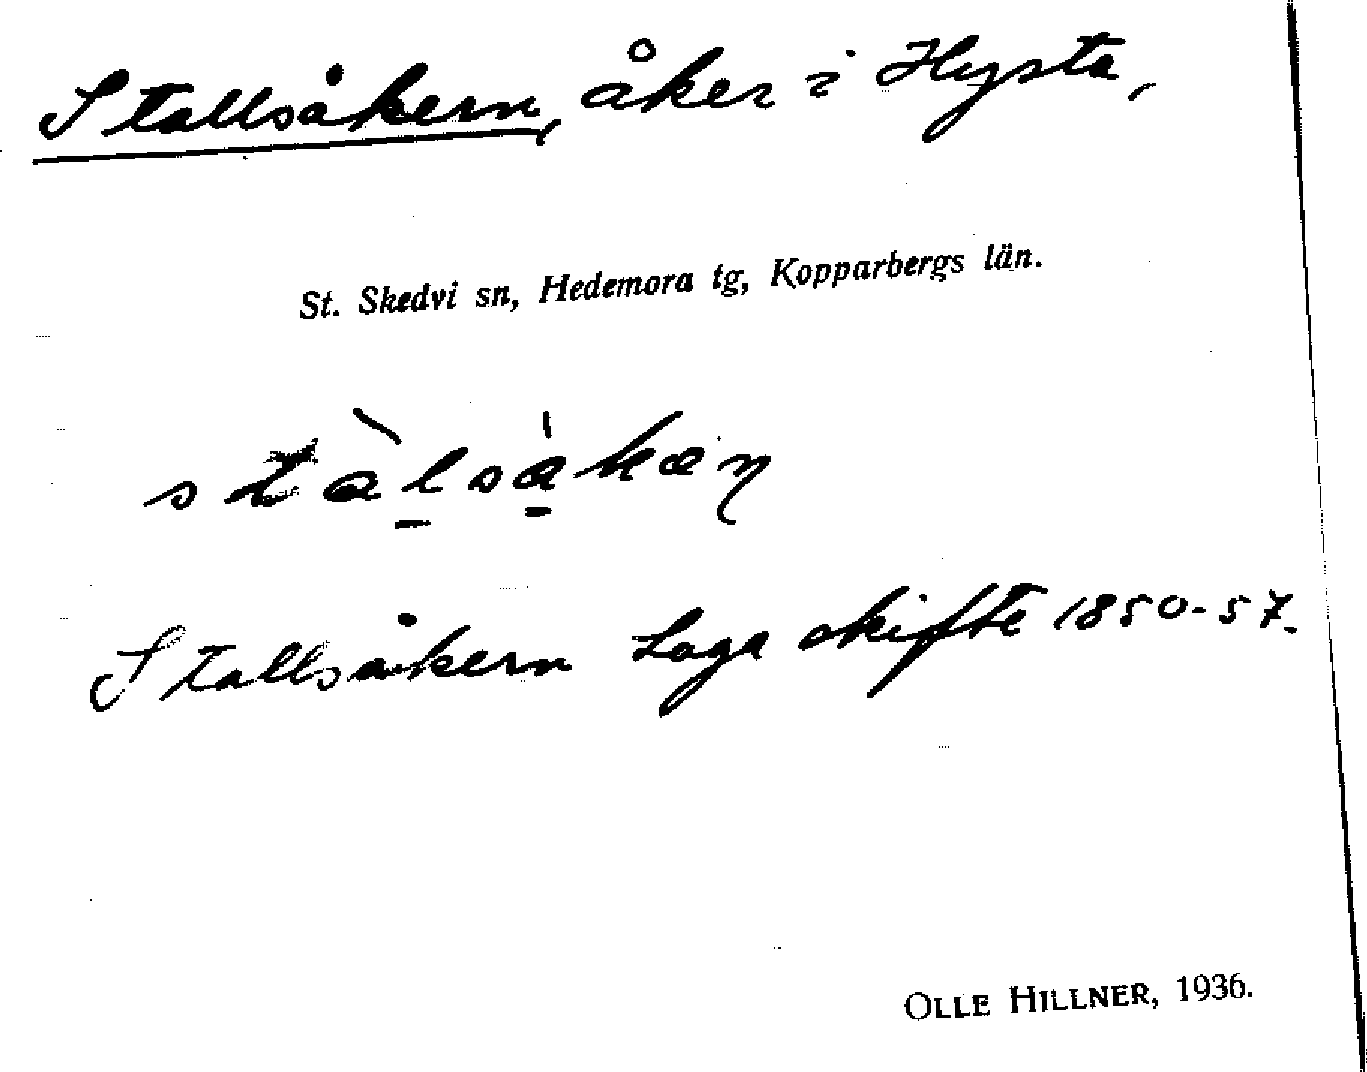 Stallsåkern, åker i Hysta,
St. Skedvi sn, Hedemora tg, Kopparbergs län.
Stallsåkern Laga skifte 1850-57.
OLLE HILLNER, 1936.